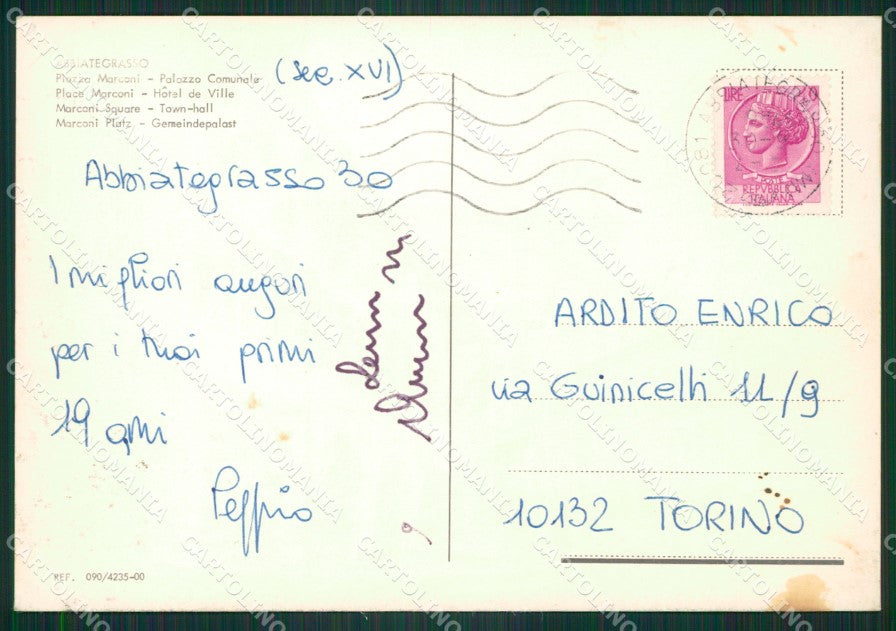 ABBIATEGRASSO
Piazza Marconi - Palazzo Comunale (sec. XVI)
Place Marconi - Hôtel de Ville
Marconi Square - Town-hall
Marconi Platz - Gemeindepalast
Abbiategrasso 30
I migliori auguri
per i tuoi primi
19 anni
Peppino
REF. 090/4235-00
LIRE
POSTE
REPVBBLICA
ITALIANA
ARDITO ENRICO
via Guinicelli 11/9
10132 TORINO
CARTOLINOMANIA